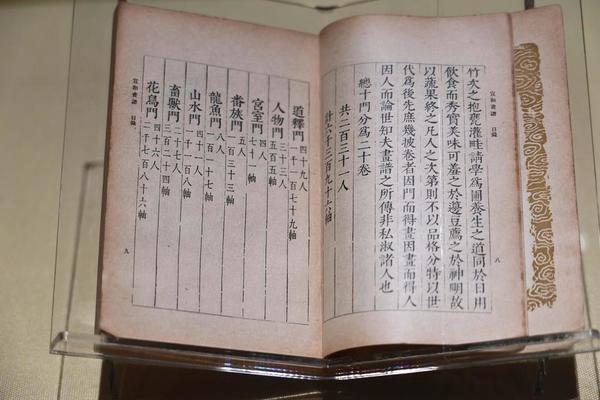 宣和畫譜 目錄
八
竹次之抱甕灌畦請學爲圃養生之道同於日用
飲食而秀實美味可羞之於籩豆薦之於神明故
以蔬果終之凡人之次第則不以品格分特以世
代爲後先庶幾披卷者因門而得畫因畫而得人
因人而論世知夫畫譜之所傳非私淑諸人也
總十門分爲二十卷
共二百三十一人
計六千三百九十六軸
道釋門 四十九人 一千一百七十九軸
人物門 三十三人 五百五軸
宮室門 四人 七十一軸
番族門 五人 一百三十三軸
龍魚門 八人 一百一十七軸
山水門 四十一人 一千一百八軸
畜獸門 二十七人 三百二十四軸
花鳥門 四十六人 二千七百八十六軸
宣和畫譜 目錄
九